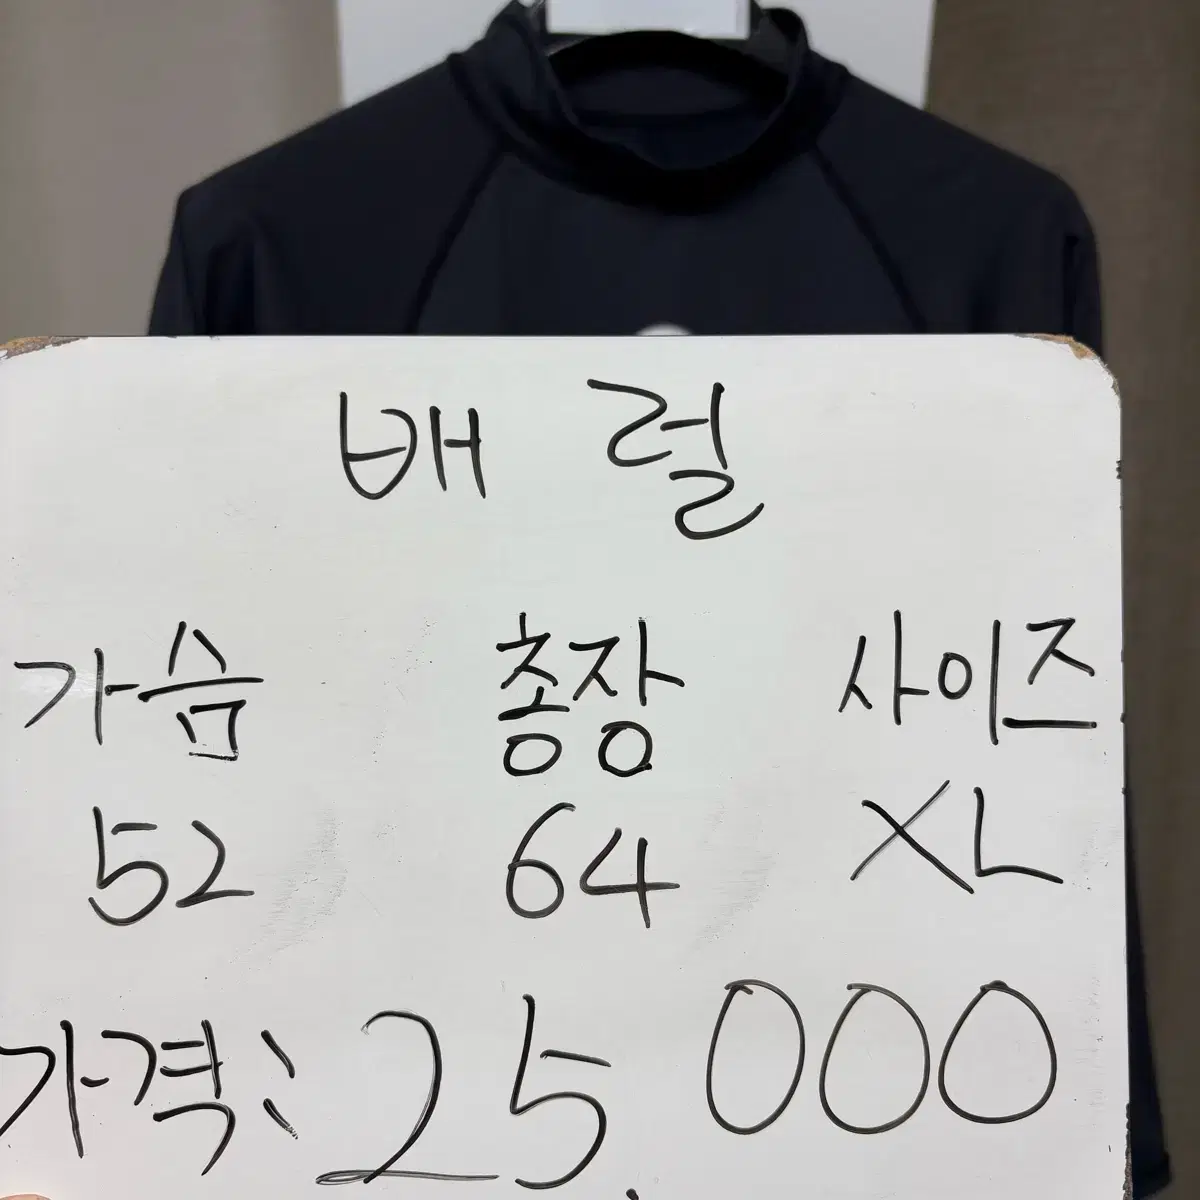 배럴
가슴 총장 사이즈
52 64 XL
가격: 25.000